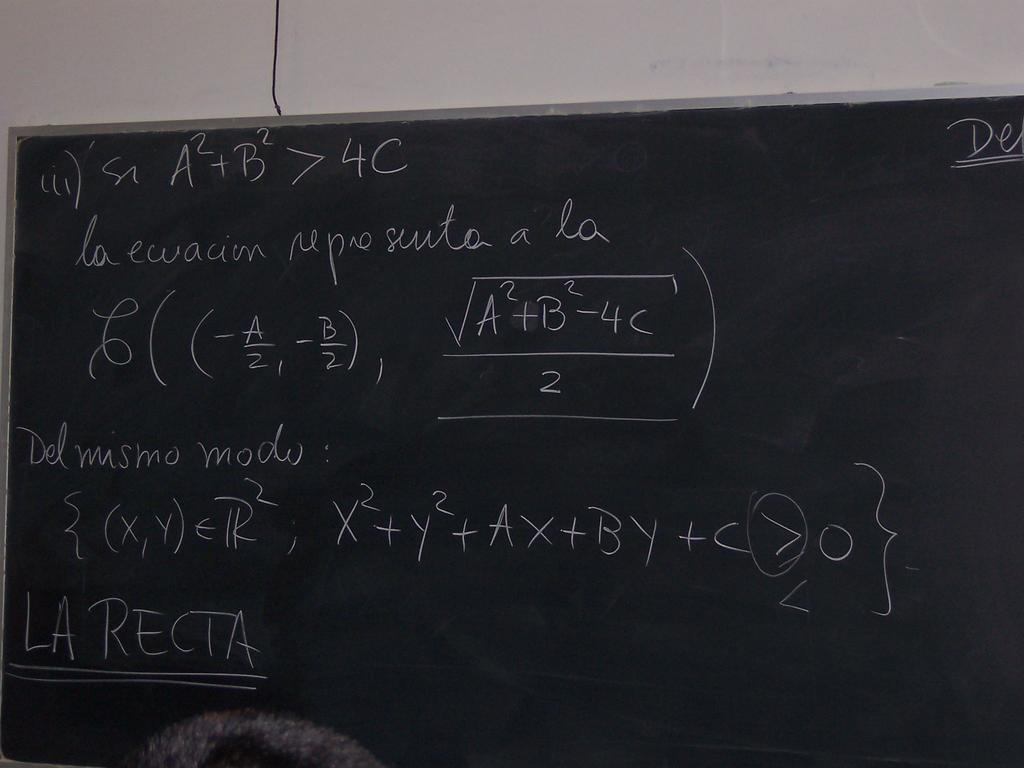 iii) Si A²+B² > 4C
la ecuacion representa a la
𝒞((-A/2, -B/2), √(A²+B²-4C)/2)
Del mismo modo:
{(X,Y)∈ℝ²; X²+Y²+AX+BY+C ≥ 0}.
<
LA RECTA